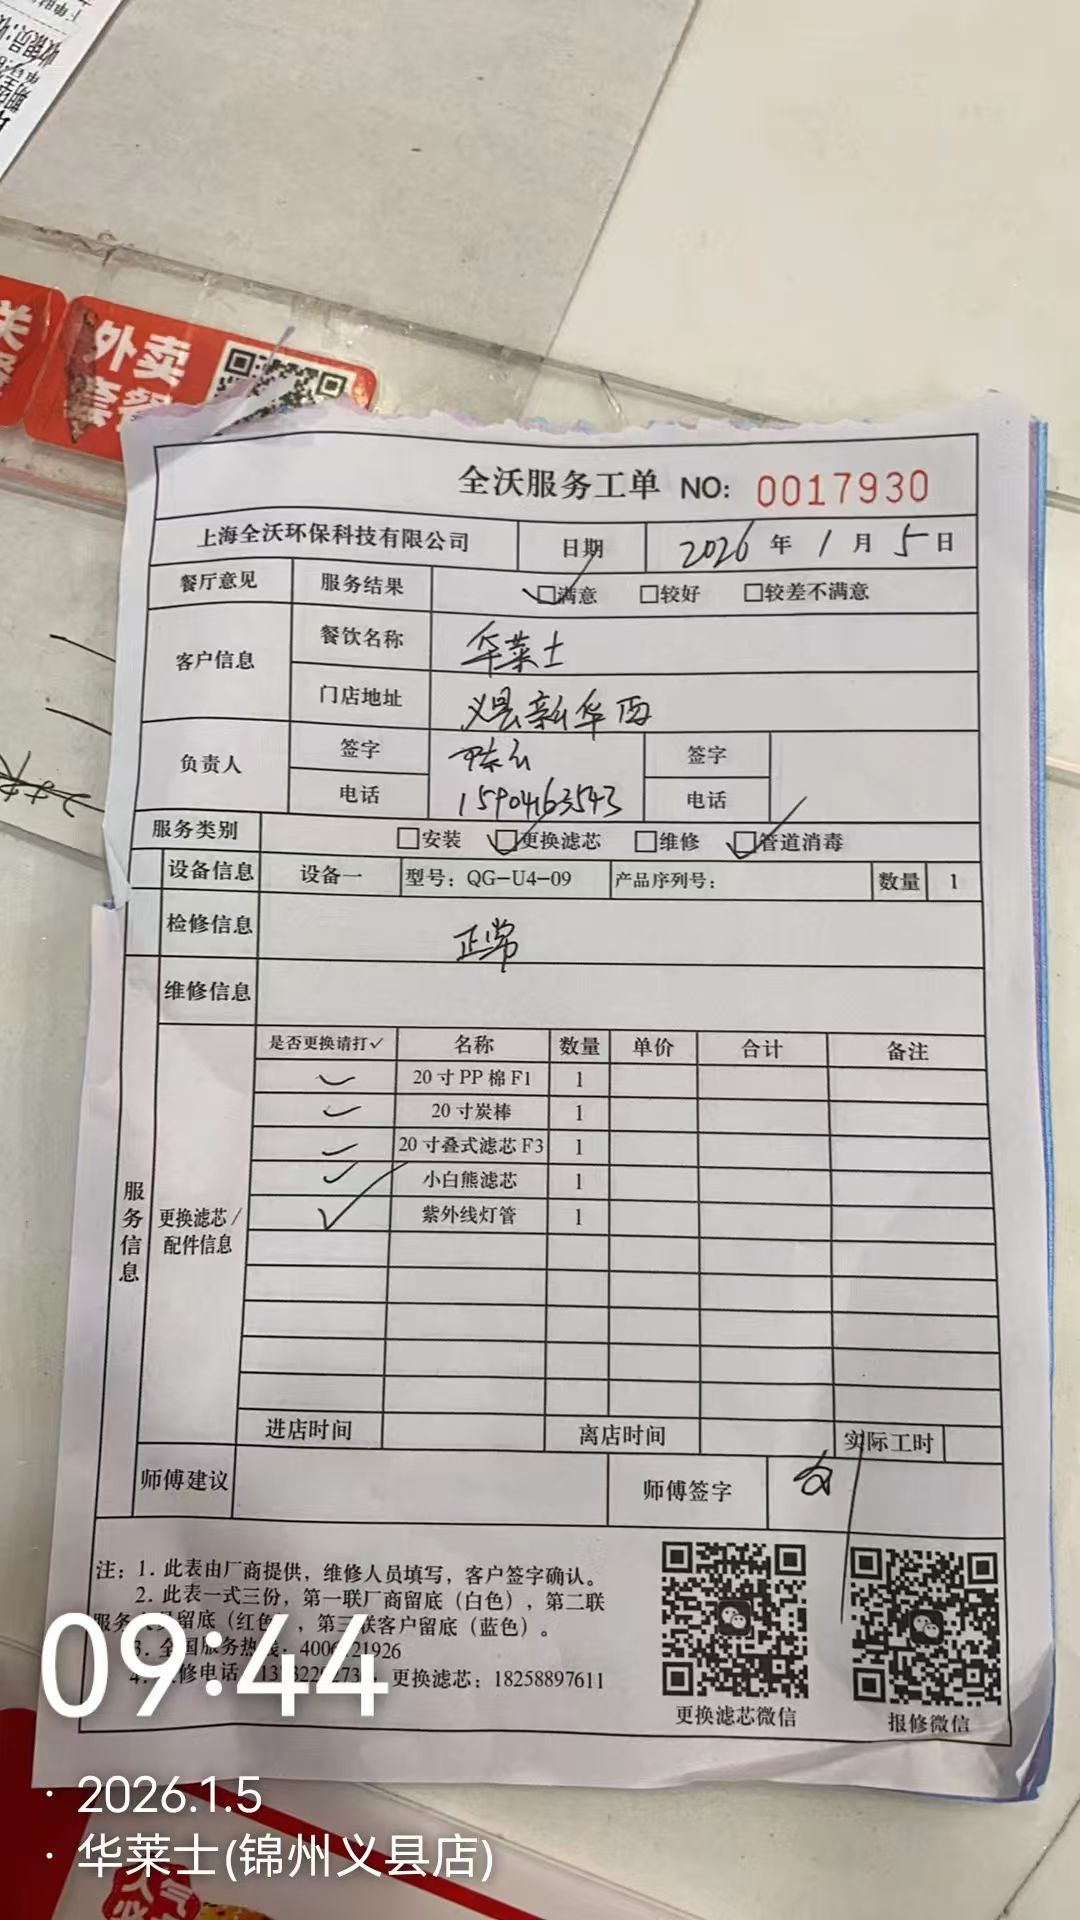 外卖
全沃服务工单 NO: 0017930
上海全沃环保科技有限公司 日期 2026 年 1 月 5 日
餐厅意见 服务结果 满意 较好 较差不满意
客户信息 餐饮名称 华莱士
门店地址 义县新华西
负责人 签字 签字
电话 15904163543 电话
服务类别 安装 更换滤芯 维修 管道消毒
设备信息 设备一 型号：QG-U4-09 产品序列号： 数量 1
检修信息 正常
维修信息
服务信息
更换滤芯/配件信息
是否更换请打✓ 名称 数量 单价 合计 备注
✓ 20寸PP棉F1 1
✓ 20寸炭棒 1
✓ 20寸叠式滤芯F3 1
✓ 小白熊滤芯 1
✓ 紫外线灯管 1
进店时间 离店时间 实际工时
师傅建议 师傅签字
注：1. 此表由厂商提供，维修人员填写，客户签字确认。
2. 此表一式三份，第一联厂商留底（白色），第二联
服务人员留底（红色），第三联客户留底（蓝色）。
3. 全国服务热线：
维修电话 更换滤芯：18258897611
更换滤芯微信 报修微信
09:44
· 2026.1.5
· 华莱士(锦州义县店)